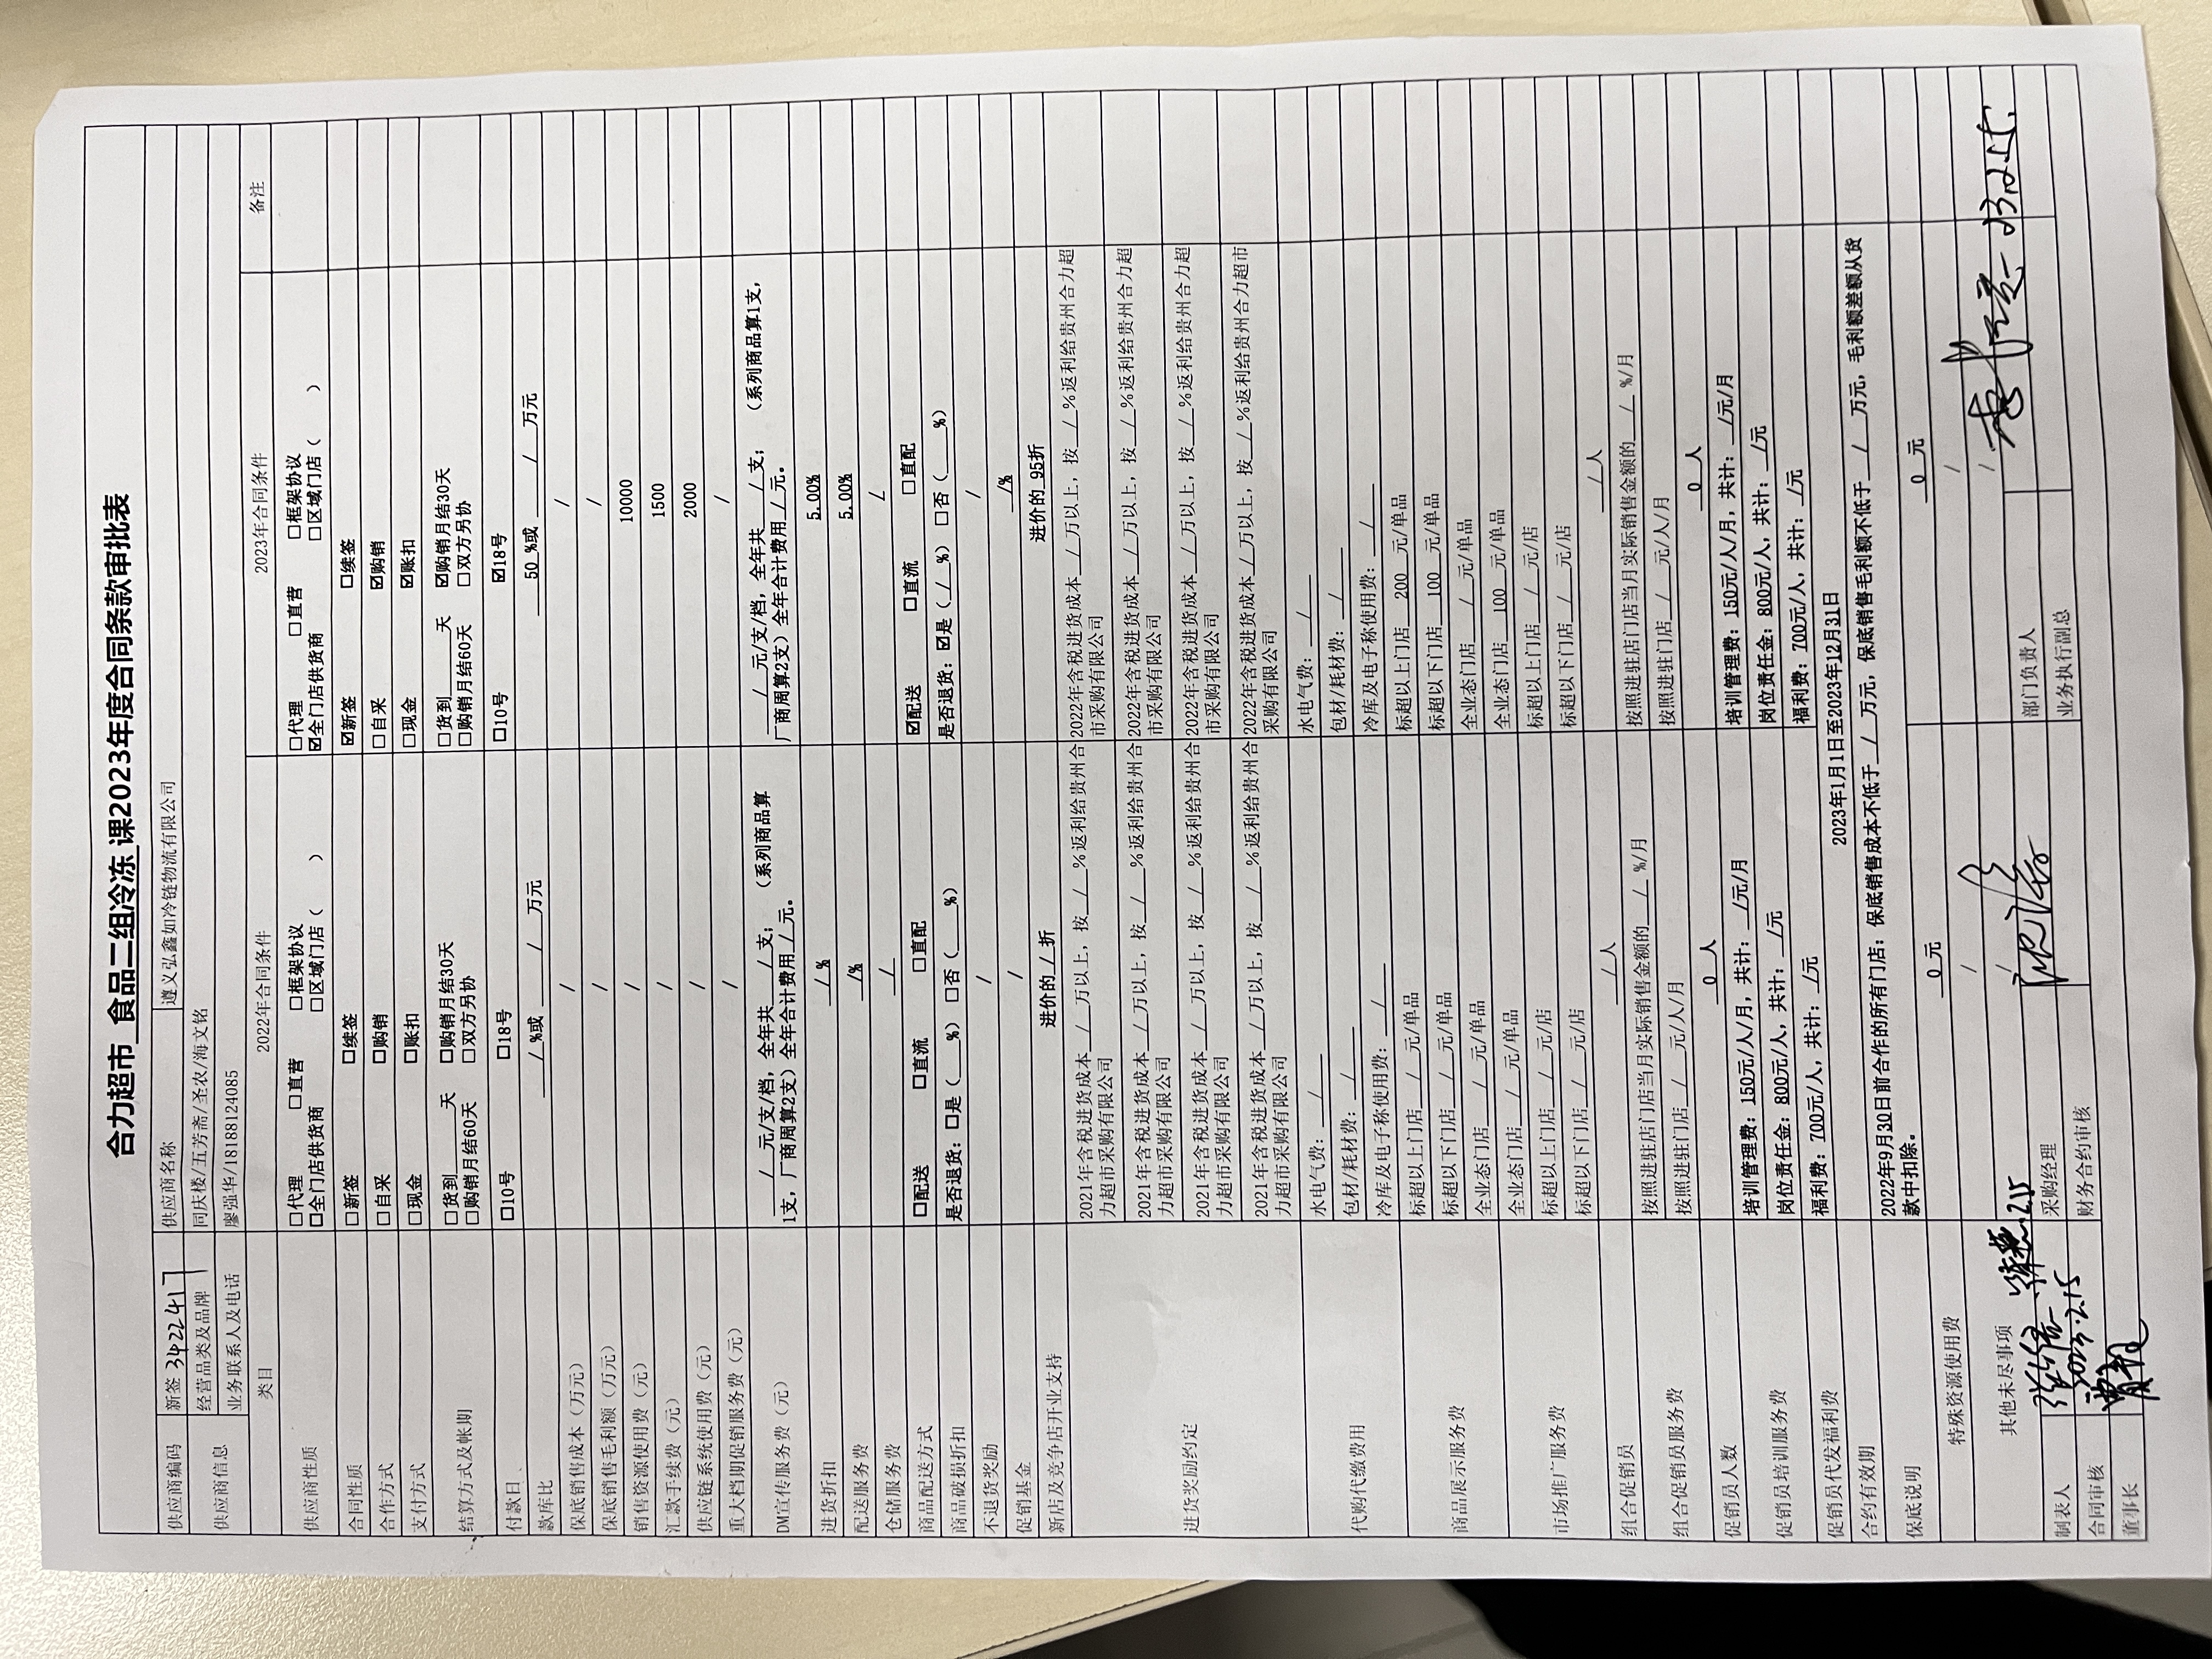 合力超市 食品二组冷冻 课2023年度合同条款审批表
供应商编码 新签 342241 供应商名称 遵义弘鑫如冷链物流有限公司
供应商信息 经营品类及品牌 同庆楼/五芳斋/圣农/海文铭
业务联系人及电话 廖强华/18188124085
类目 2022年合同条件 2023年合同条件 备注
供应商性质 □代理 □直营 □框架协议 □代理 □直营 □框架协议
□全门店供货商 □区域门店（ ） ☑全门店供货商 □区域门店（ ）
合同性质 □新签 □续签 ☑新签 □续签
合作方式 □自采 □购销 □自采 ☑购销
支付方式 □现金 □账扣 □现金 ☑账扣
结算方式及帐期 □货到___天 □购销月结30天 □货到___天 ☑购销月结30天
□购销月结60天 □双方另协 □购销月结60天 □双方另协
付款日 □10号 □18号 □10号 ☑18号
款库比 / %或 / 万元 50 %或 / 万元
保底销售成本（万元） / /
保底销售毛利额（万元） / /
销售资源使用费（元） / 10000
汇款手续费（元） / 1500
供应链系统使用费（元） / 2000
重大档期促销服务费（元） / /
DM宣传服务费（元） / 元/支/档，全年共 / 支； （系列商品算 / 元/支/档，全年共 / 支； （系列商品算1支，
1支，厂商周算2支）全年合计费用 / 元。 厂商周算2支）全年合计费用 / 元。
进货折扣 / % 5.00%
配送服务费 /% 5.00%
仓储服务费 / /
商品配送方式 □配送 □直流 □直配 ☑配送 □直流 □直配
商品破损折扣 是否退货：□是（___%）□否（___%） 是否退货：☑是（_/_%）□否（___%）
不退货奖励 / /
促销基金 / /%
新店及竞争店开业支持 进价的 / 折 进价的 95折
进货奖励约定 2021年含税进货成本 / 万以上，按 / %返利给贵州合 2022年含税进货成本 / 万以上，按 / %返利给贵州合力超
力超市采购有限公司 市采购有限公司
2021年含税进货成本 / 万以上，按 / %返利给贵州合 2022年含税进货成本 / 万以上，按 / %返利给贵州合力超
力超市采购有限公司 市采购有限公司
2021年含税进货成本 / 万以上，按 / %返利给贵州合 2022年含税进货成本 / 万以上，按 / %返利给贵州合力超
力超市采购有限公司 市采购有限公司
2021年含税进货成本 / 万以上，按 / %返利给贵州合 2022年含税进货成本 / 万以上，按 / %返利给贵州合力超市
力超市采购有限公司 采购有限公司
代购代缴费用 水电气费： / 水电气费： /
包材/耗材费： / 包材/耗材费： /
冷库及电子称使用费： / 冷库及电子称使用费： /
商品展示服务费 标超以上门店 / 元/单品 标超以上门店 200 元/单品
标超以下门店 / 元/单品 标超以下门店 100 元/单品
全业态门店 / 元/单品 全业态门店 / 元/单品
市场推广服务费 全业态门店 / 元/单品 全业态门店 100 元/单品
标超以上门店 / 元/店 标超以上门店 / 元/店
标超以下门店 / 元/店 标超以下门店 / 元/店
组合促销员 / 人 / 人
组合促销员服务费 按照进驻店门店当月实际销售金额的 / %/月 按照进驻店门店当月实际销售金额的 / %/月
按照进驻门店 / 元/人/月 按照进驻门店 / 元/人/月
促销员人数 0 人 0 人
促销员培训服务费 培训管理费：150元/人/月，共计： /元/月 培训管理费：150元/人/月，共计： /元/月
岗位责任金：800元/人，共计： /元 岗位责任金：800元/人，共计： /元
促销员代发福利费 福利费：700元/人，共计： /元 福利费：700元/人，共计： /元
合约有效期 2023年1月1日至2023年12月31日
保底说明 2022年9月30日前合作的所有门店：保底销售成本不低于 / 万元，保底销售毛利额不低于 / 万元，毛利额差额从货
款中扣除。
特殊资源使用费 0 元 0 元
其他未尽事项 / /
/ /
制表人 2.15 采购经理 部门负责人
合同审核 2023.2.15 财务合约审核 业务执行副总
董事长